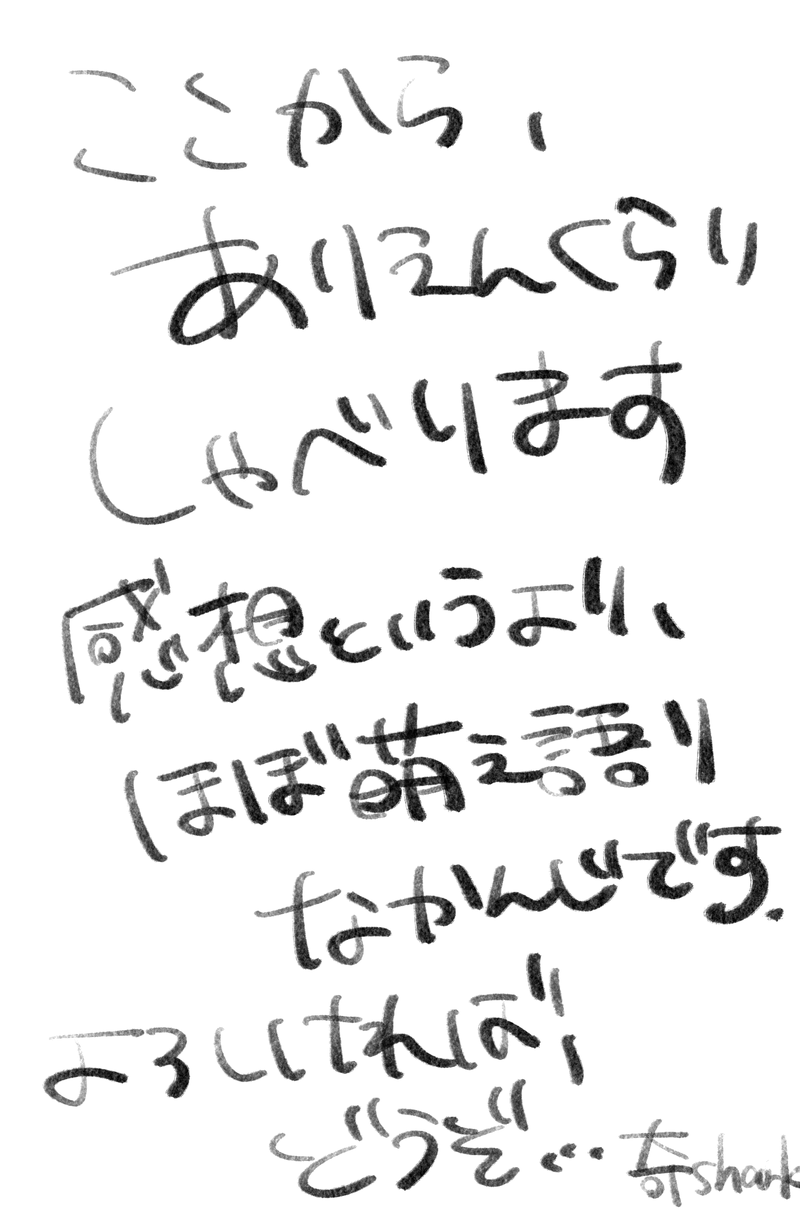 ここから、
ありえんくらり
しゃべります
感想というより、
ほぼ萌え語り
なかんじです.
よろしければ、
どうぞ…
奈shark